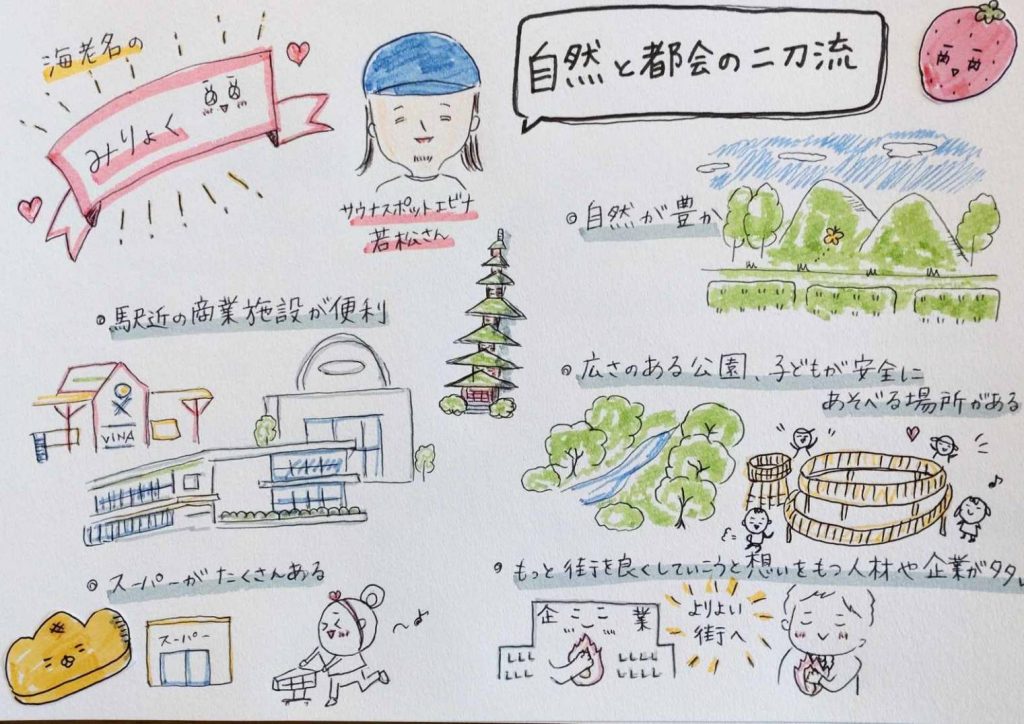 海老名の
みりょく
自然と都会の二刀流
サウナスポットエビナ
若松さん
自然が豊か
駅近の商業施設が便利
VINA
広さのある公園、子どもが安全に
あそべる場所がある
スーパーがたくさんある
スーパー
もっと街を良くしていこうと想いをもつ人材や企業が多い
企業
よりよい
街へ